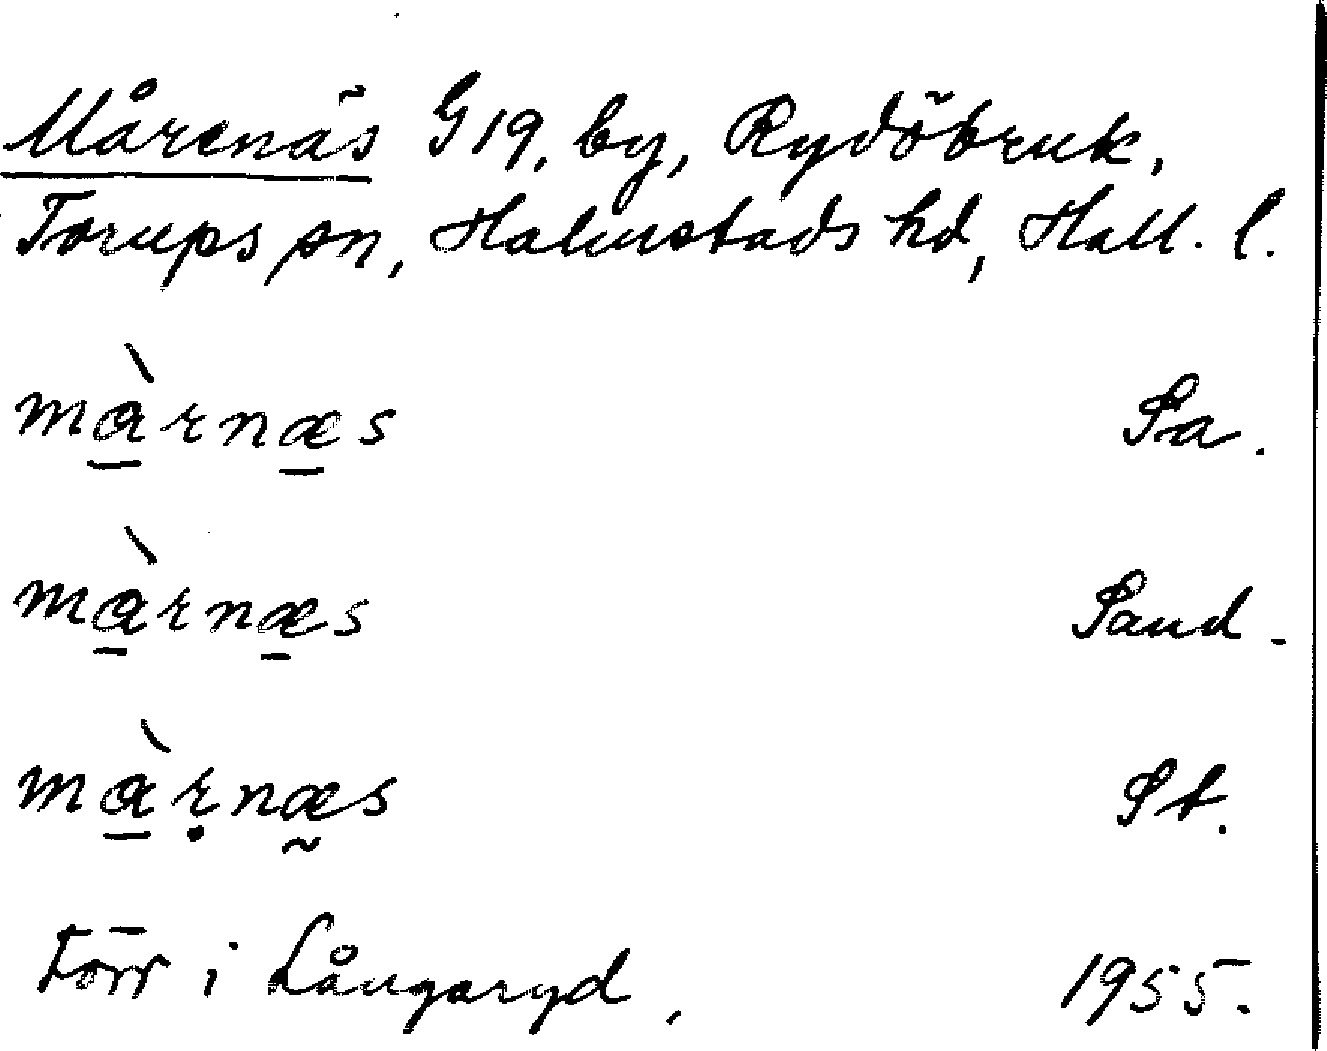 Mårenäs G19, by, Rydöbruk,
Torups sn, Halmstads hd, Hall. l.
mὰ̲rnæ̲s Sa.
mὰ̲rnæ̲s Sand.
mὰ̲ṛnæ̰s St.
Förr i Långaryd, 1955.